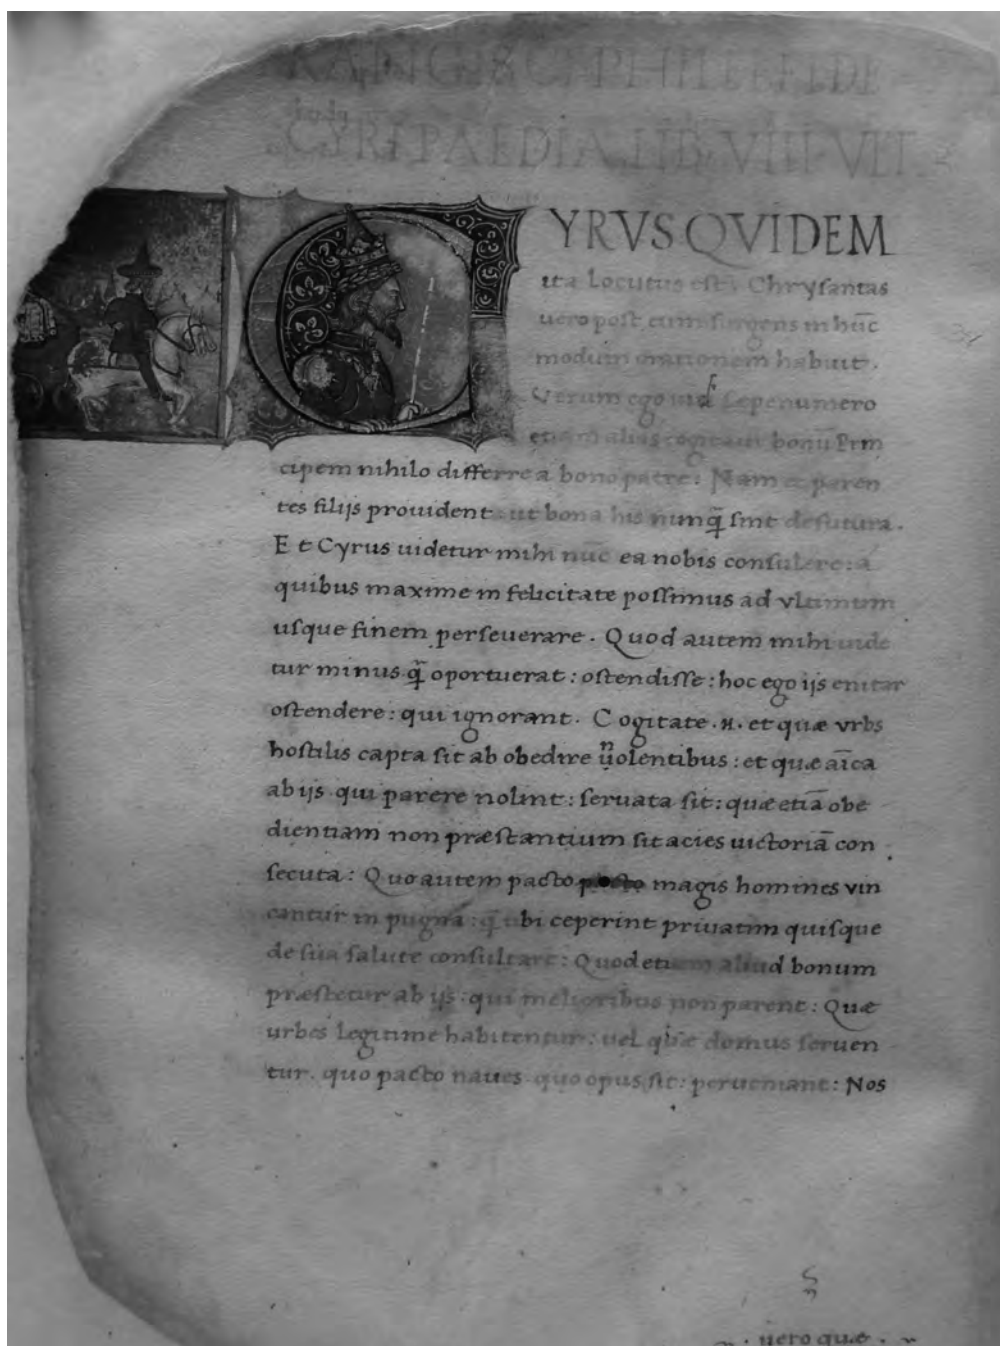 CYRI PAEDIA LIB VIII VII
YRVS QVIDEM
ita Locutus est: Chrysantas
uero post eum surgens in hūc
modum orationem habuit.
Verum ego sepenumero
etiam alias bonū Prin
cipem nihilo differre a bono patre: Nam et paren
tes filijs prouident: ut bona his nunq̄ sint defutura.
Et Cyrus uidetur mihi nūc ea nobis consulere: a
quibus maxime in felicitate possimus ad vltimum
usque finem perseuerare. Quod autem mihi uide
tur minus q̄ oportuerat: ostendisse: hoc ego ijs enitar
ostendere: qui ignorant. Cogitate .n. et quæ vrbs
hostilis capta sit ab obedire nolentibus: et quæ aīca
ab ijs qui parere nolint: seruata sit: quæ etiā obe
dientiam non præstantium sit acies uictoriā con
secuta: Quo autem pacto pacto magis homines vin
cantur in pugna: q̄ ubi ceperint priuatim quisque
de sua salute consultare: Quod etiam aliud bonum
præstetur ab ijs: qui melioribus non parent: Quæ
urbes legitime habitentur: uel quæ domus seruen
tur. quo pacto naues quo opus sit: perueniant: Nos
uero quæ.